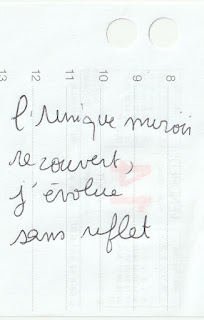 l'unique miroir
recouvert,
j'évolue
sans reflet
13
12
11
10
9
8